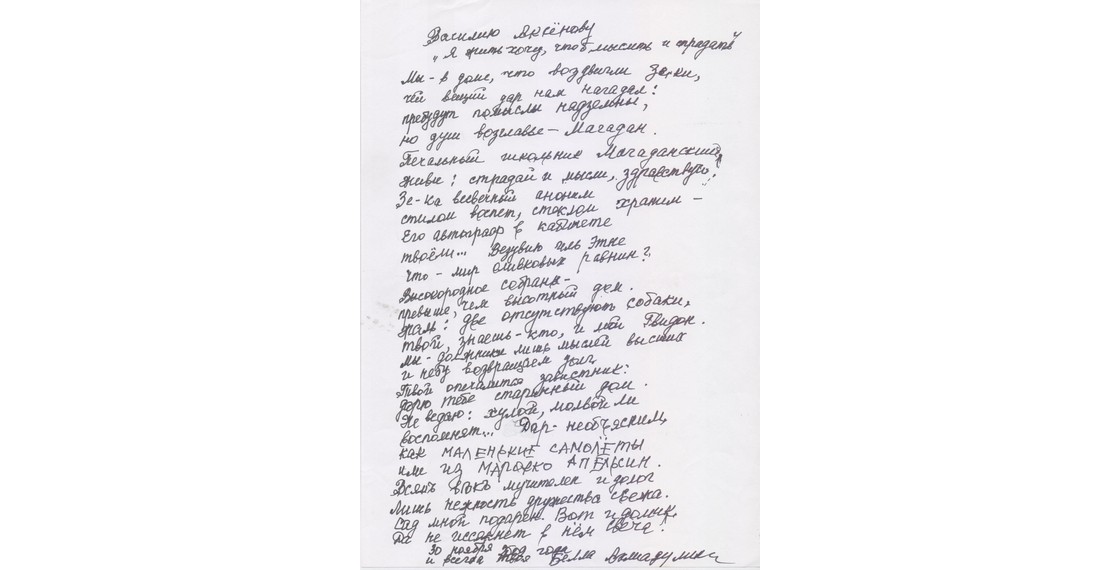 Василию Аксёнову
"Я жить хочу, чтоб мыслить и страдать"
Мы - в доме, что воздвигли Зэ-ки,
чей вещий дар нам нагадал:
пребудут помыслы надземны,
но душ возглавье - Магадан.
Печальный школьник Магаданский,
живи: страдай и мысли, здравствуй!
Зе-ка всевечный аноним
стилом воспет, стеклом храним -
Его автограф в кабинете
твоём... Везувию иль Этне
что - мир оливковых равнин?
Высокородное собранье -
превыше, чем высотный дом.
жаль: две отсутствуют собаки,
твой, знаешь - кто, и мой Гвидон.
Мы - должники лишь мыслей высших
и небу возвращаем долг.
Твой опечалится завистник:
дарю тебе старинный дом.
Не ведаю: хулой, молвой ли
воспомнят... Дар - необъясним,
как МАЛЕНЬКИЕ САМОЛЁТЫ
или из МАРОККО АПЕЛЬСИН.
Всякъ вѣкъ мучителен и долог
лишь нежность дружества свежа.
Сад мной подарен. Вот и домик,
Да не иссякнет в нём свеча!
30 ноября года
и всегда твоя Белла Ахмадулина